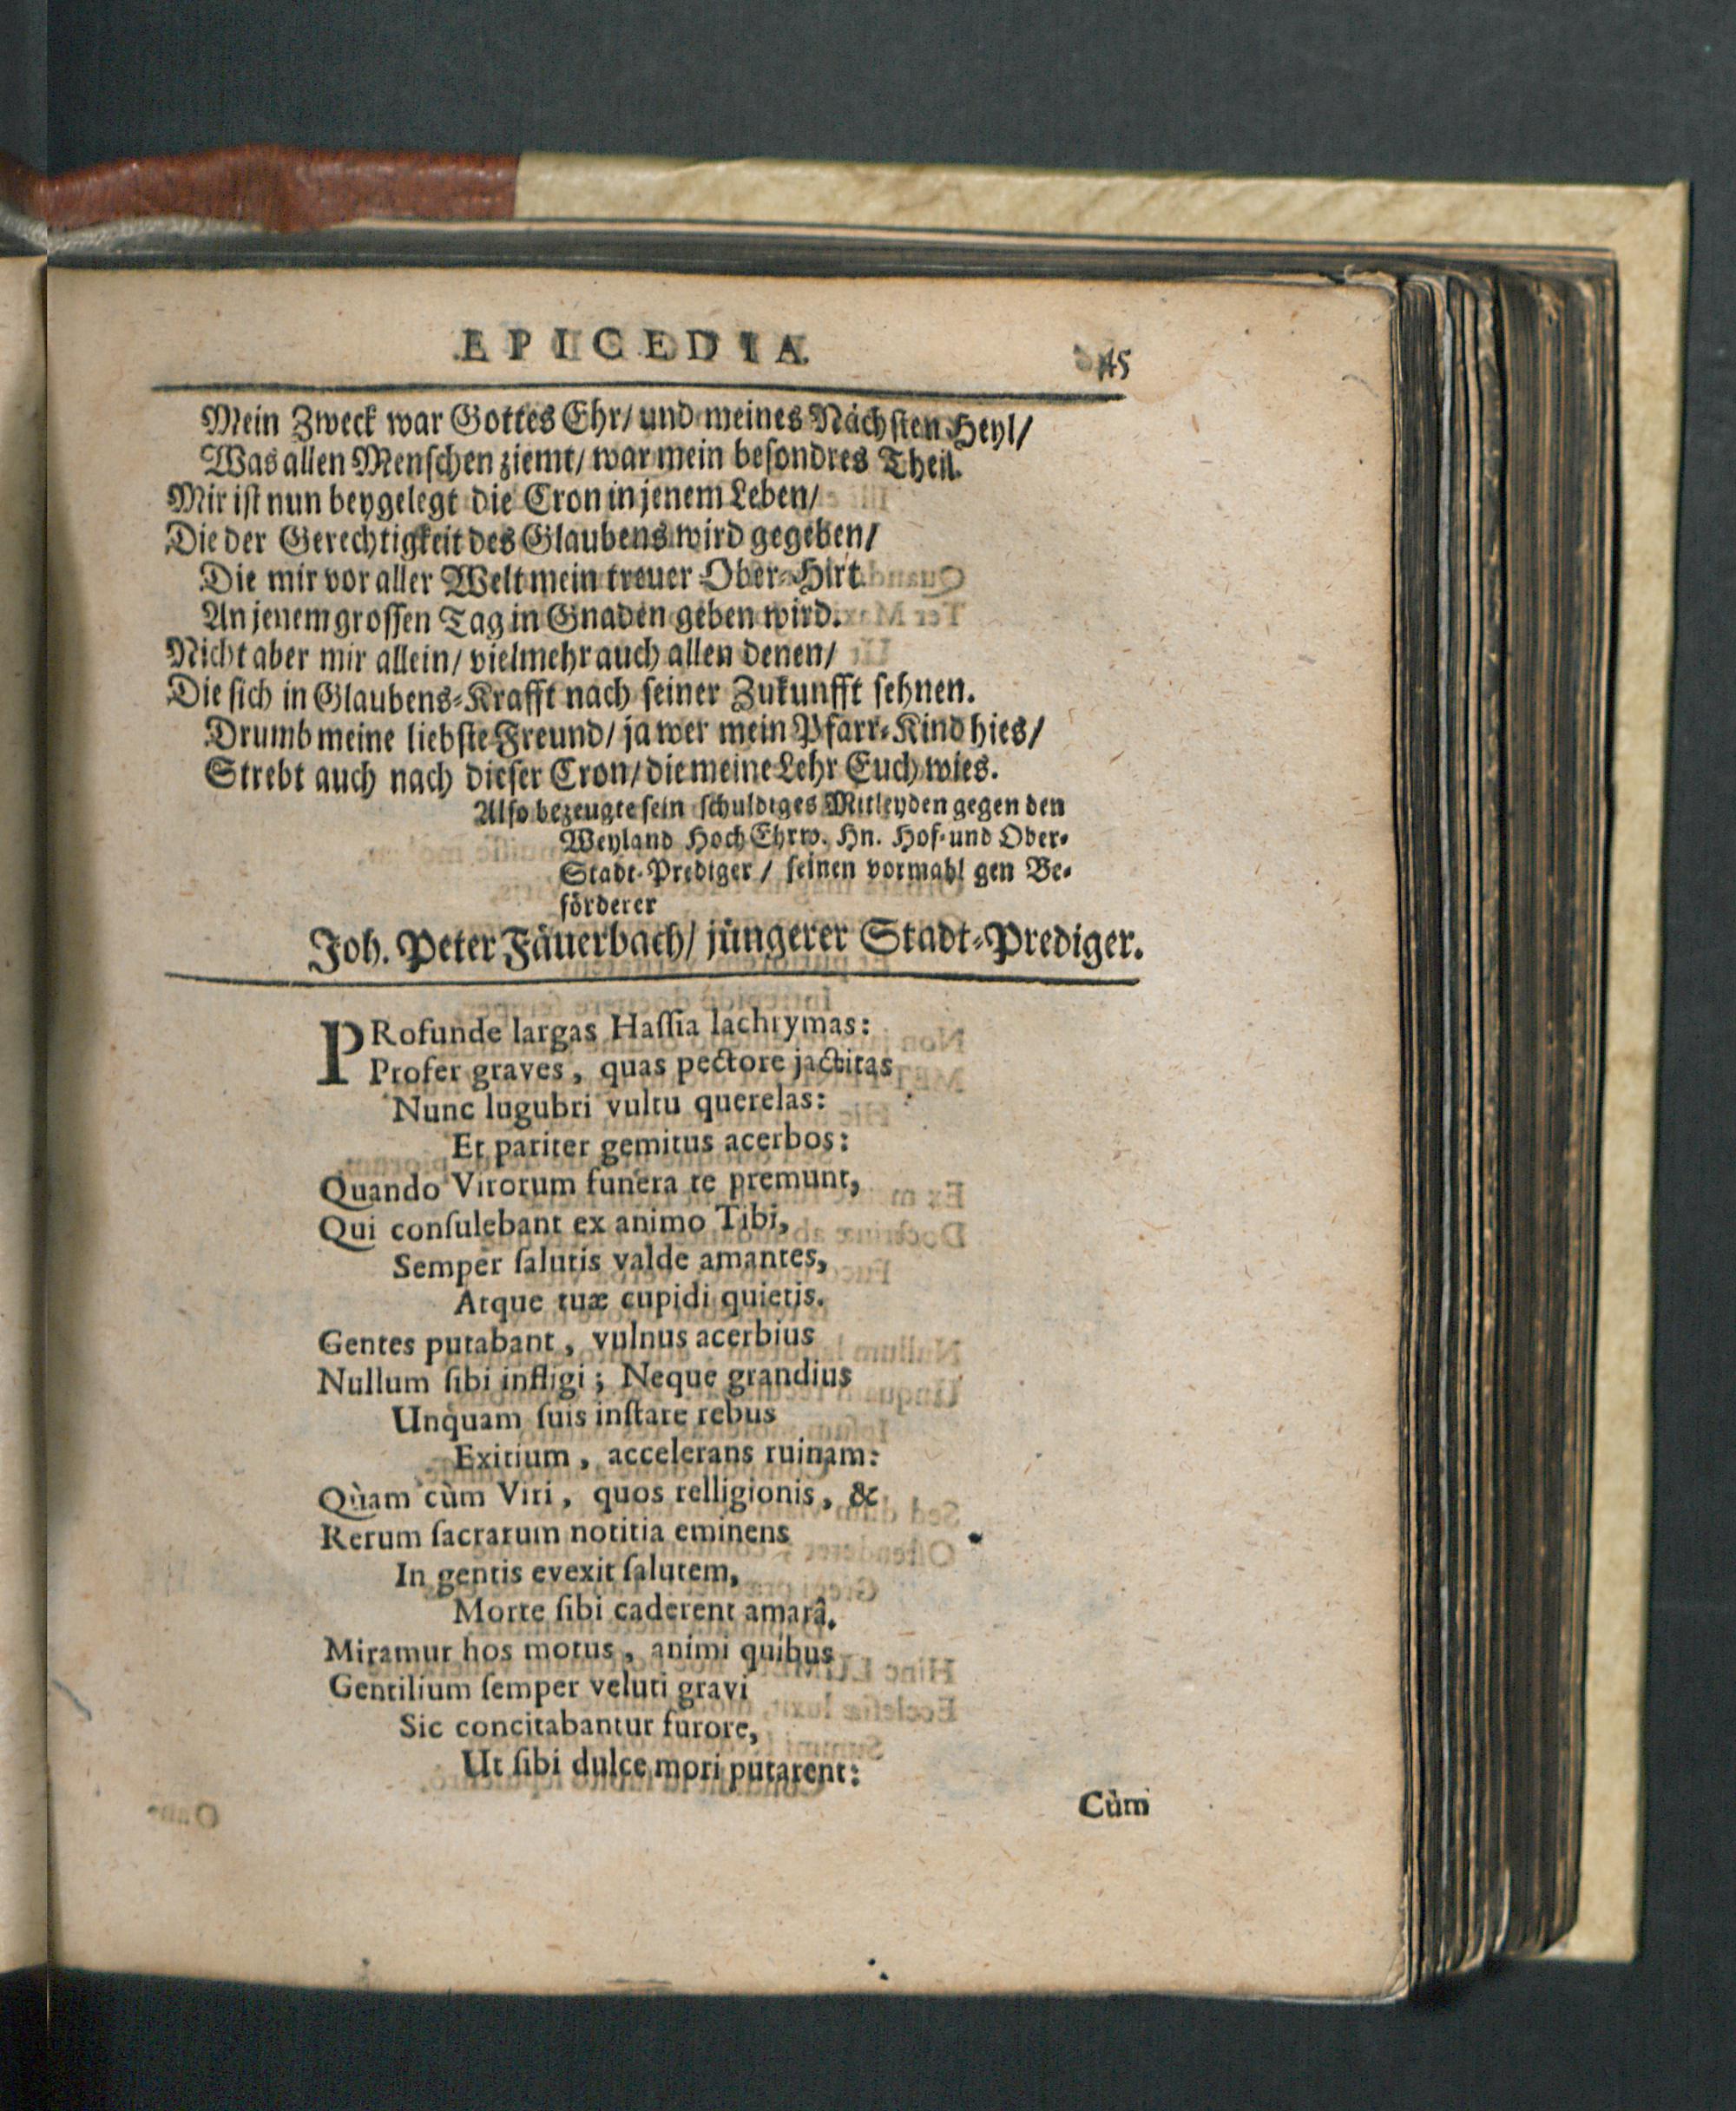 EPICEDIA 45
Mein Zweck war Gottes Ehr/ und meines Nächsten Heyl/
Was allen Menschen ziemt/ war mein besondres Theil.
Mir ist nun beygelegt die Cron in jenem Leben/
Die der Gerechtigkeit des Glaubens wird gegeben/
Die mir vor aller Welt mein treuer Ober-Hirt
An jenem grossen Tag in Gnaden geben wird.
Nicht aber mir allein/ vielmehr auch allen denen/
Die sich in Glaubens-Krafft nach seiner Zukunfft sehnen.
Drumb meine liebste Freund/ ja wer mein Pfarr-Kind hies/
Strebt auch nach dieser Cron/ die meine Lehr Euch wies.
Also bezeugte sein schuldiges Mitleyden gegen den
Weyland HochEhrw. Hn. Hof- und Ober-
Stadt-Prediger / seinen vormahl gen Be-
förderer
Joh. Peter Fäuerbach/ jüngerer Stadt-Prediger.
PRofunde largas Haſſia lachrymas:
Profer graves, quas pectore jactitas
Nunc lugubri vultu querelas:
Et pariter gemitus acerbos:
Quando Virorum funera te premunt,
Qui conſulebant ex animo Tibi,
Semper ſalutis valde amantes,
Atque tuæ cupidi quietis.
Gentes putabant, vulnus acerbius
Nullum ſibi infligi; Neque grandius
Unquam ſuis inſtare rebus
Exitium, accelerans ruinam:
Quàm cùm Viri, quos relligionis, &
Rerum ſacrarum notitia eminens
In gentis evexit ſalutem,
Morte ſibi caderent amarâ.
Miramur hos motus, animi quibus
Gentilium ſemper veluti gravi
Sic concitabantur furore,
Ut ſibi dulce mori putarent:
Cùm